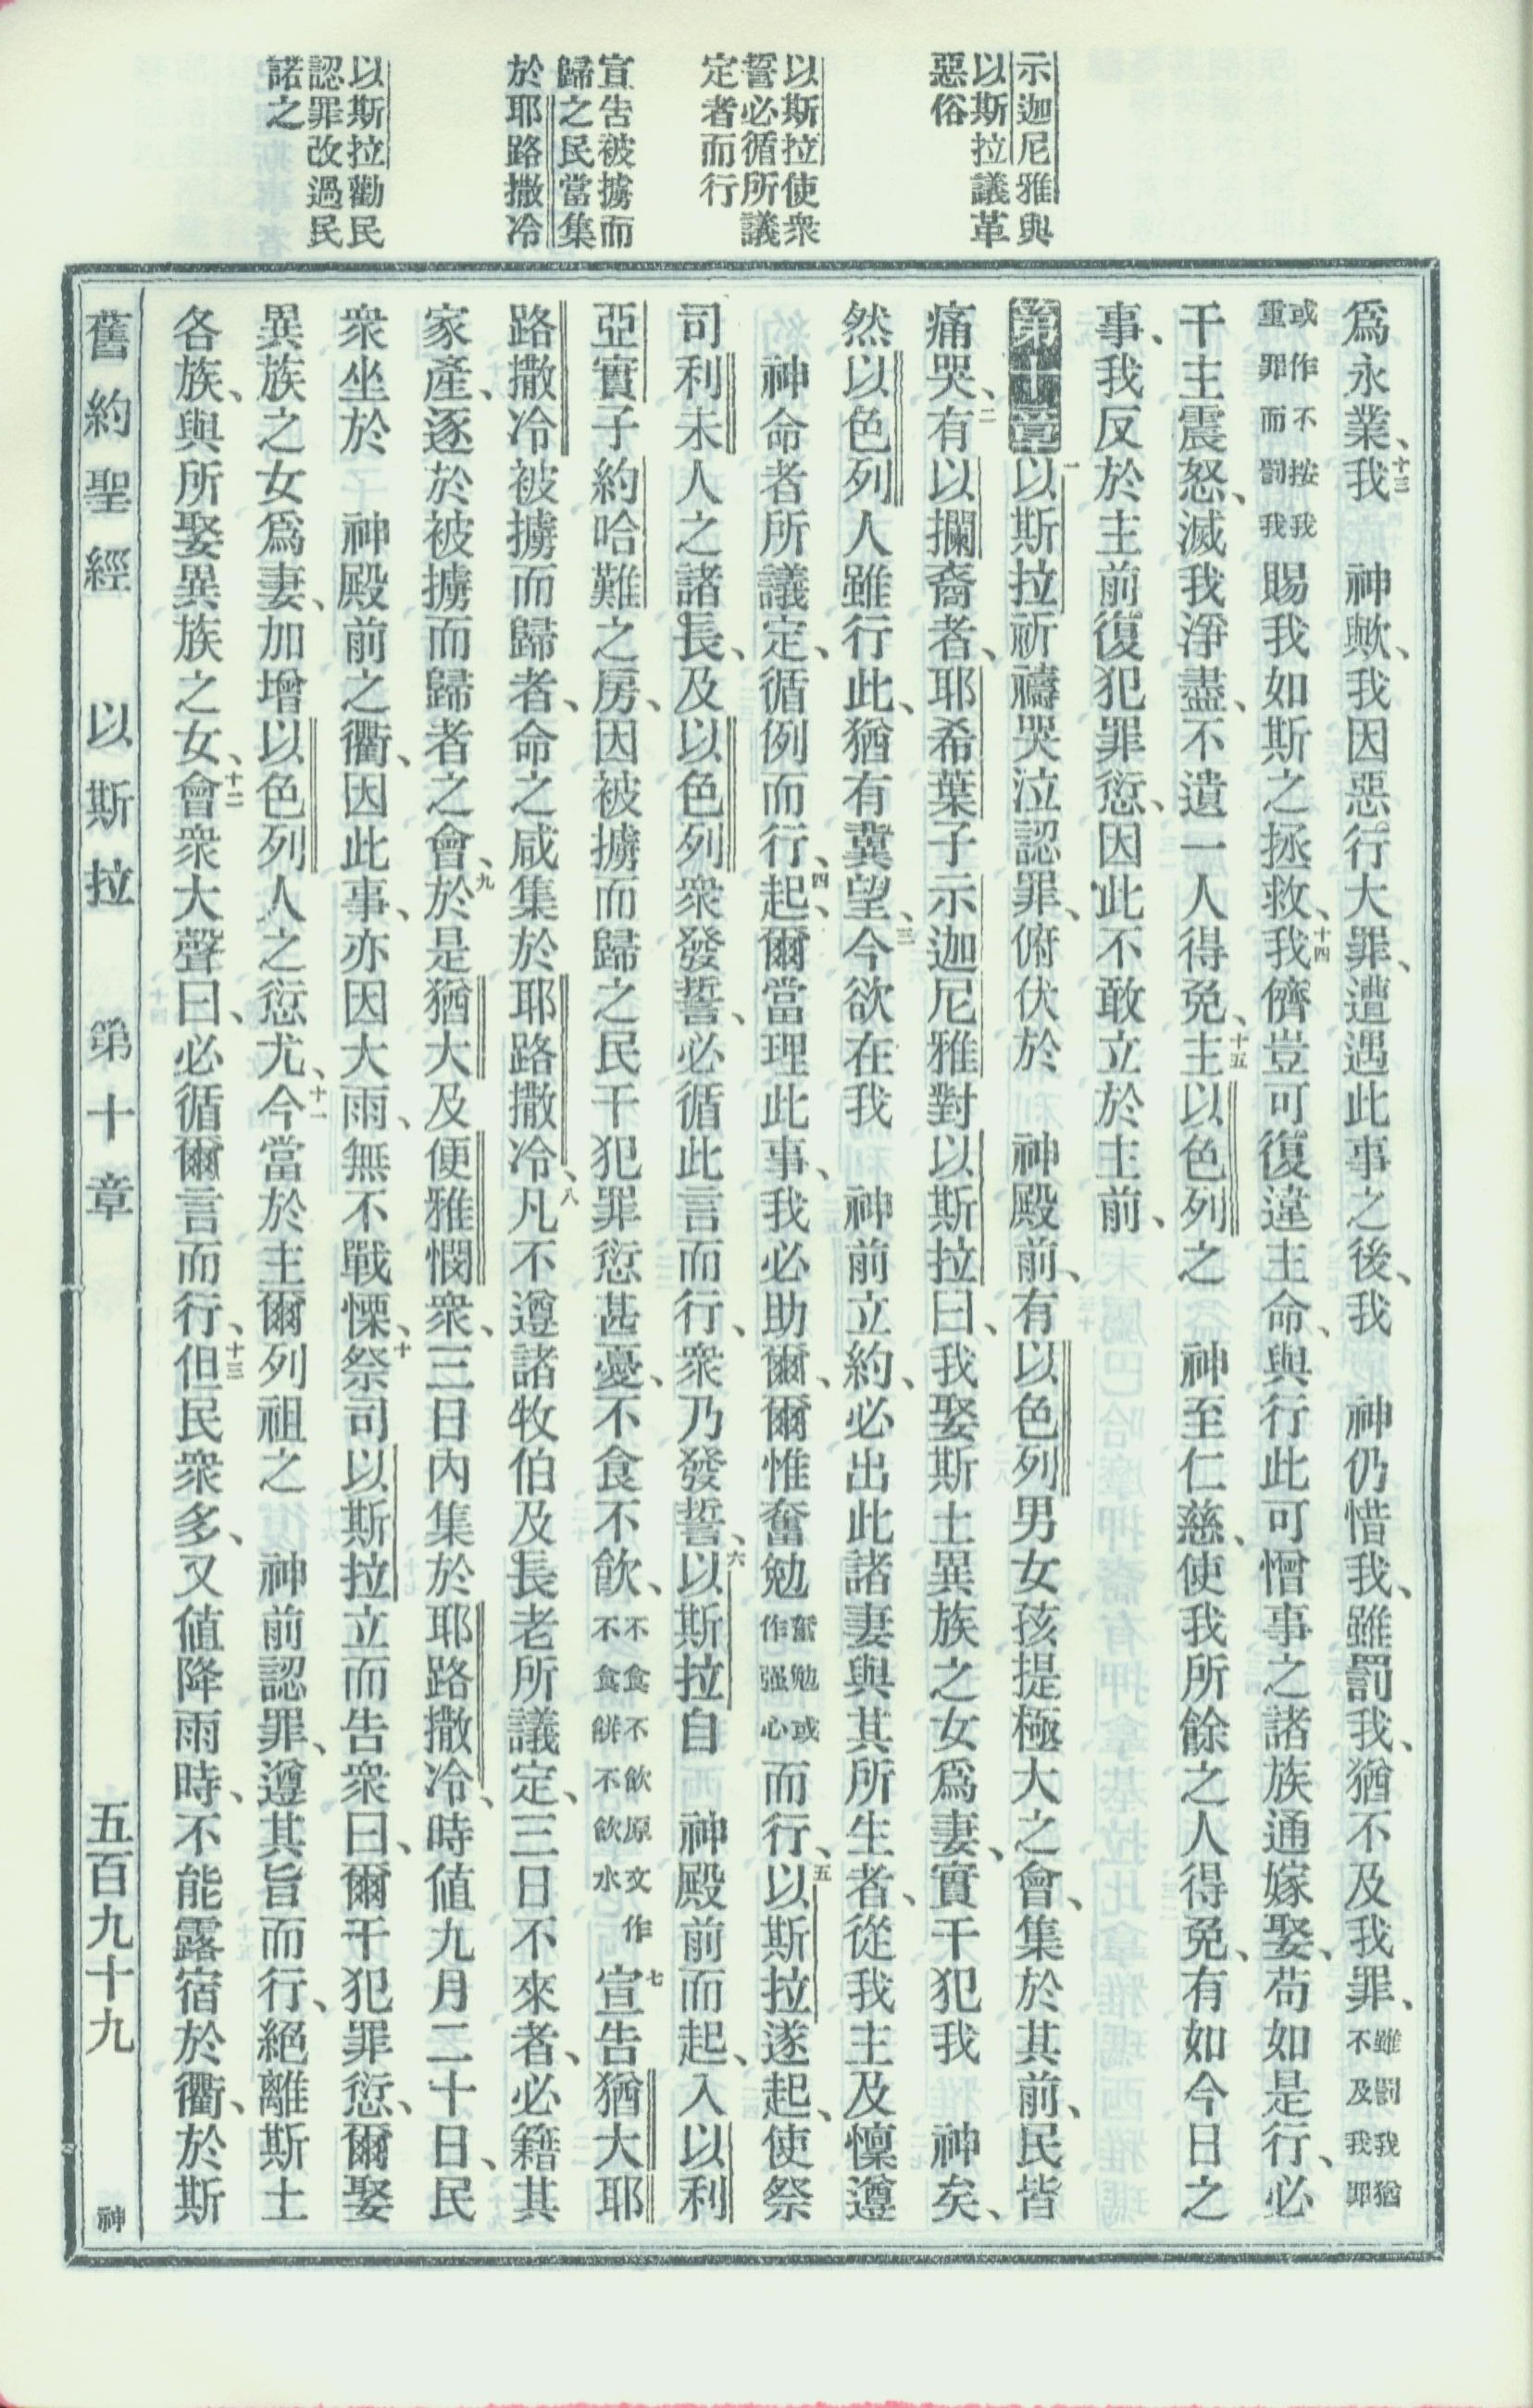 示迦尼雅與
以斯拉議革
惡俗
以斯拉使衆
誓必循所議
定者而行
宣告被擄而
歸之民當集
於耶路撒冷
以斯拉勸民
認罪改過民
諾之
爲永業、十三我　神歟、我因惡行大罪、遭遇此事之後、我　神仍惜我、雖罰我、猶不及我罪、雖罰我猶不及我罪
或作不按我重罪而罰我賜我如斯之拯救、十四我儕豈可復違主命、與行此可憎事之諸族通嫁娶、苟如是行、必
干主震怒、滅我淨盡、不遺一人得免、十五主以色列之　神至仁慈、使我所餘之人得免、有如今日之
事、我反於主前復犯罪愆、因此不敢立於主前、
第十章一以斯拉祈禱哭泣認罪、俯伏於　神殿前、有以色列男女孩提極大之會、集於其前、民皆
痛哭、二有以攔裔者、耶希葉子示迦尼雅對以斯拉曰、我娶斯土異族之女爲妻、實干犯我　神矣、
然以色列人雖行此、猶有冀望、三今欲在我　神前立約、必出此諸妻與其所生者、從我主及懍遵
　神命者所議定、循例而行、四起、爾當理此事、我必助爾、爾惟奮勉奮勉或作强心而行、五以斯拉遂起、使祭
司利未人之諸長、及以色列衆發誓、必循此言而行、衆乃發誓、六以斯拉自　神殿前而起、入以利
亞實子約哈難之房、因被擄而歸之民干犯罪愆甚憂、不食不飲、不食不飲原文作不食餅不飲水七宣告猶大耶
路撒冷被擄而歸者、命之咸集於耶路撒冷、八凡不遵諸牧伯及長老所議定、三日不來者、必籍其
家產、逐於被擄而歸者之會、九於是猶大及便雅憫衆、三日內集於耶路撒冷、時値九月二十日、民
衆坐於　神殿前之衢、因此事、亦因大雨、無不戰慄、十祭司以斯拉立而告衆曰、爾干犯罪愆、爾娶
異族之女爲妻、加增以色列人之愆尤、十一今當於主爾列祖之　神前認罪、遵其旨而行、絕離斯土
各族、與所娶異族之女、十二會衆大聲曰、必循爾言而行、十三但民衆多、又値降雨時、不能露宿於衢、於斯
舊約聖經　以斯拉　第十章　五百九十九　神